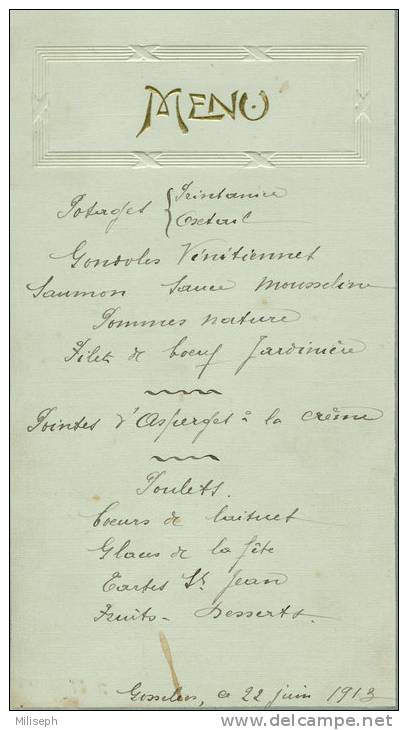 MENU
Potages { Printanier
Oxtail
Gondoles Vénitiennes
Saumon Sauce Mousseline
Pommes nature
Filet de boeuf Jardinière
Pointes d'Asperges à la crème
Poulets.
Coeurs de laitues
Glaces de la fête
Tartes St Jean
Fruits - Desserts.
Gosselies, ce 22 juin 1913
© Miliseph
delcampe.net